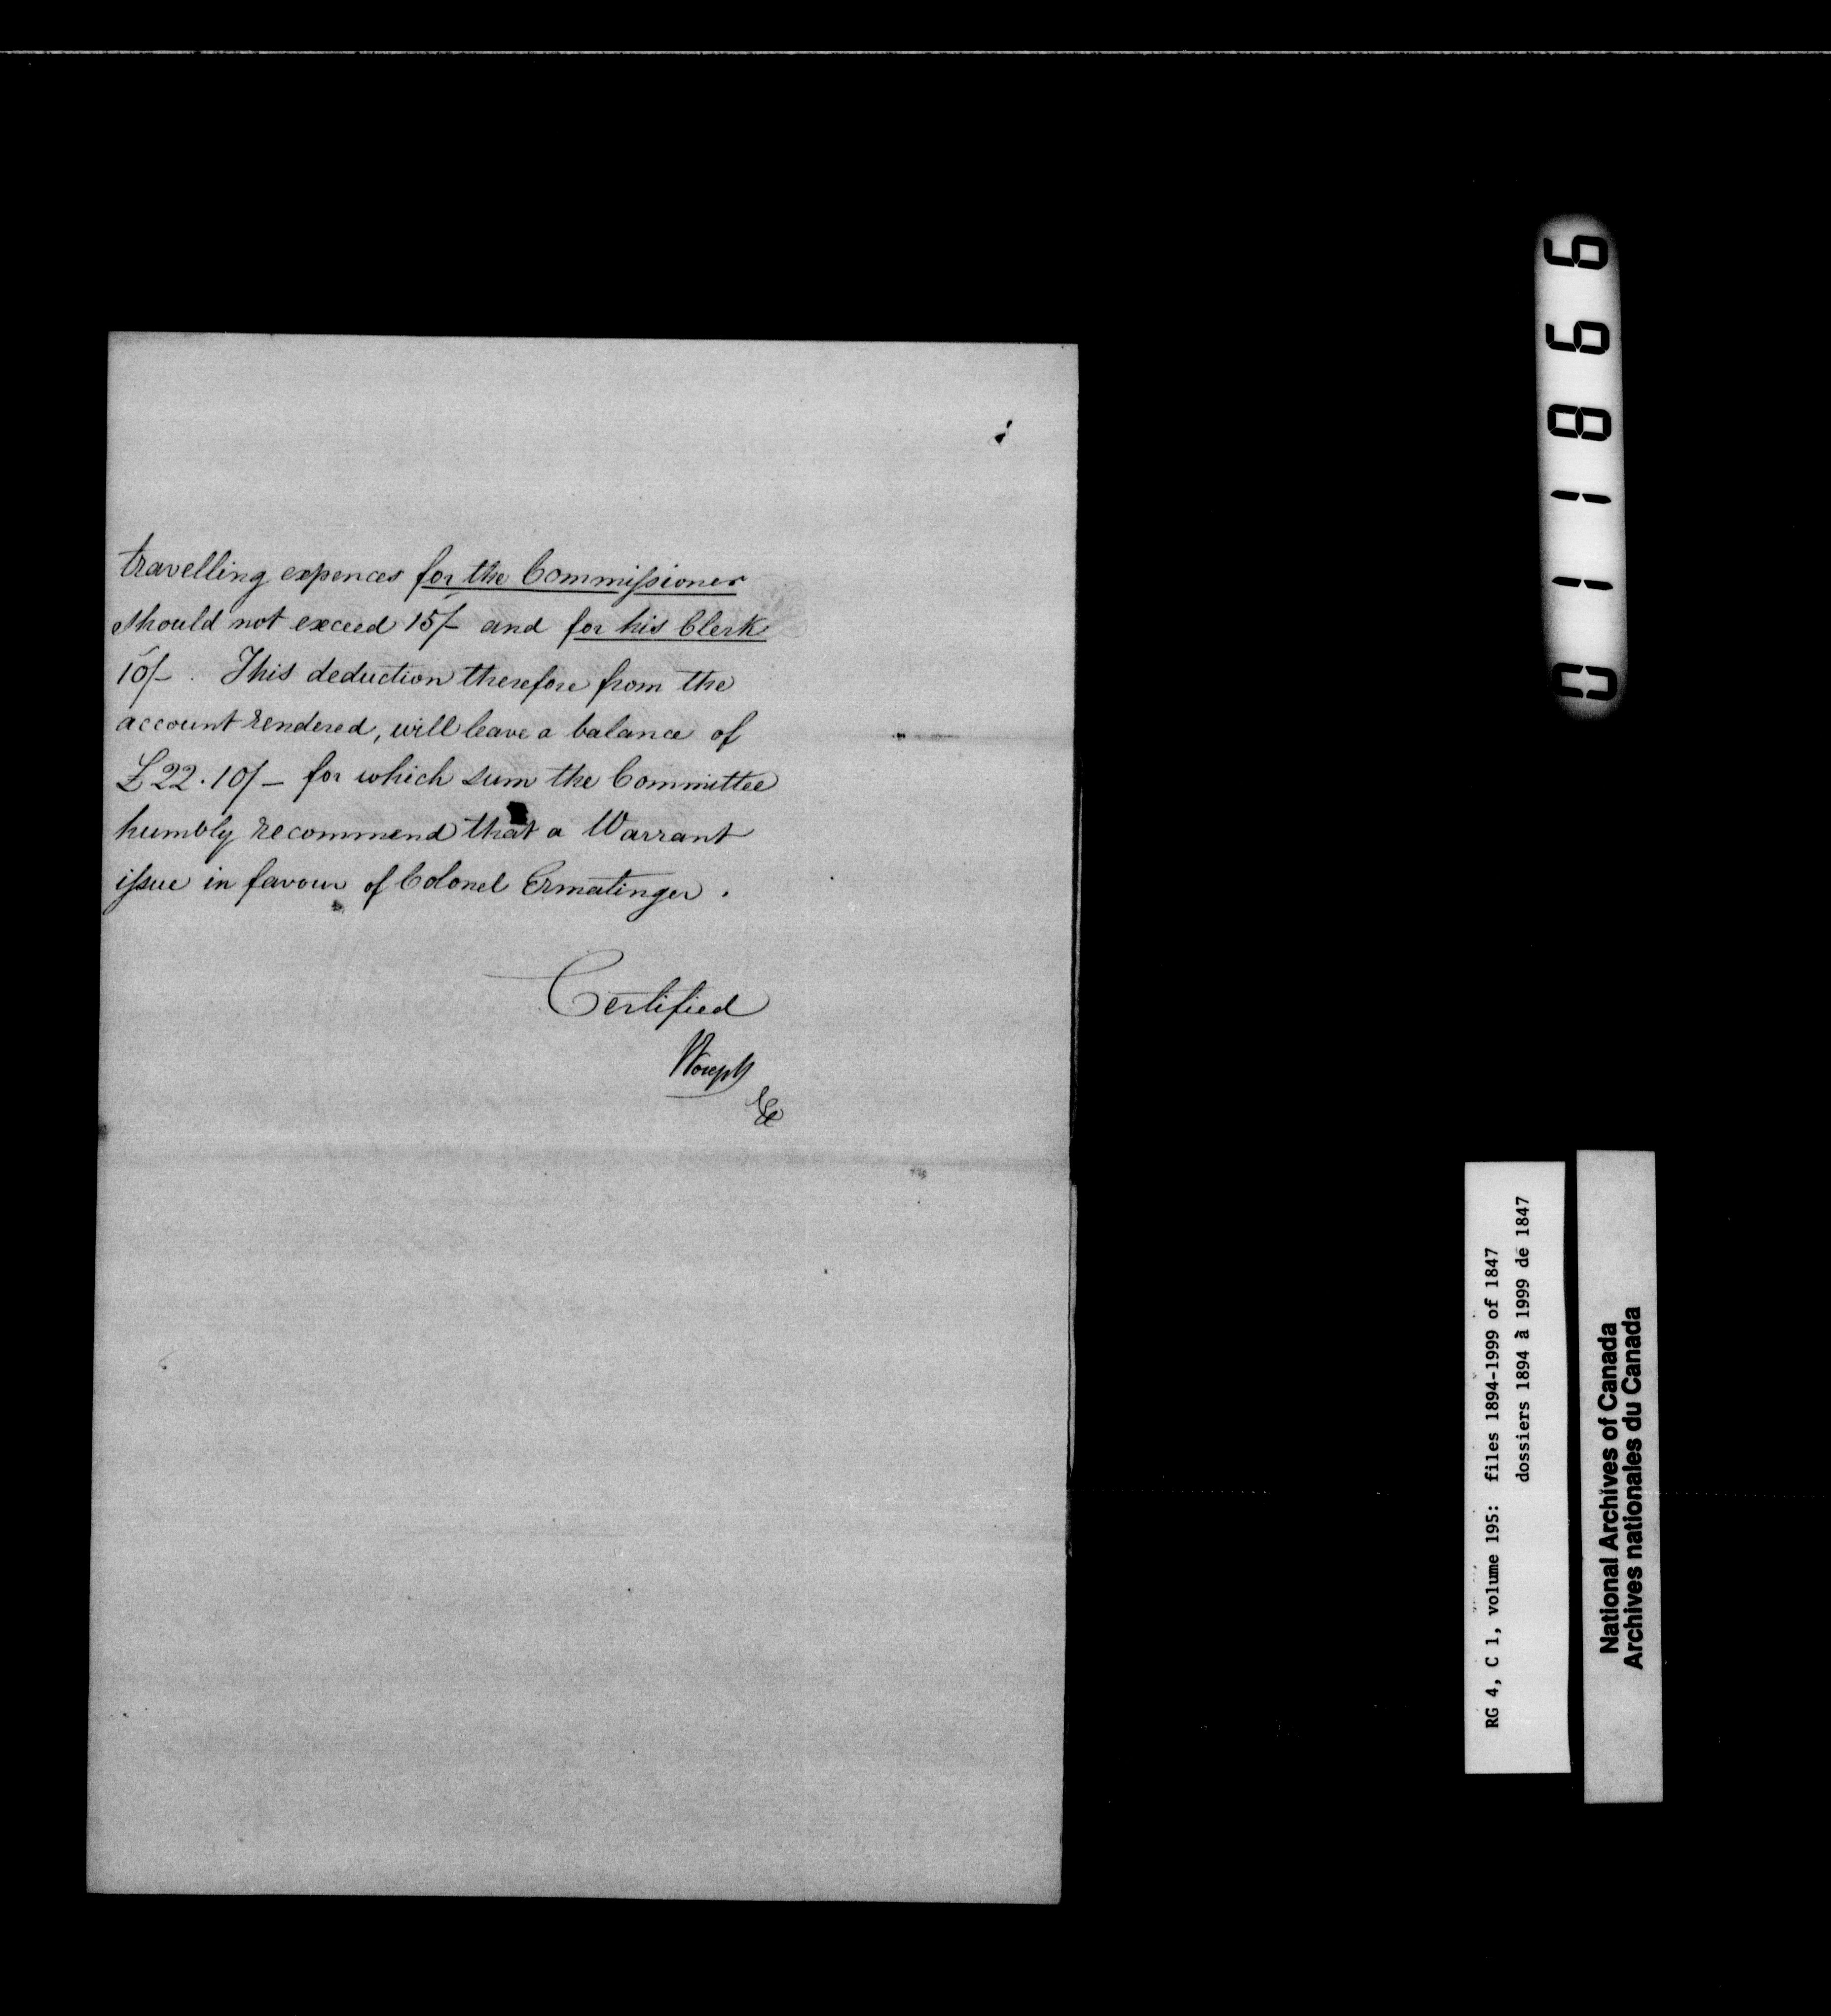 travelling expences for the Commissioner
should not exceed 15/- and for his Clerk
10/- . This deduction therefore from the
account rendered, will leave a balance of
£22.10/- for which sum the Committee
humbly recommend that a Warrant
issue in favour of Colonel Ermatinger.
Certified
011866
RG 4, C 1, volume 195: files 1894-1999 of 1847
dossiers 1894 à 1999 de 1847
National Archives of Canada
Archives nationales du Canada